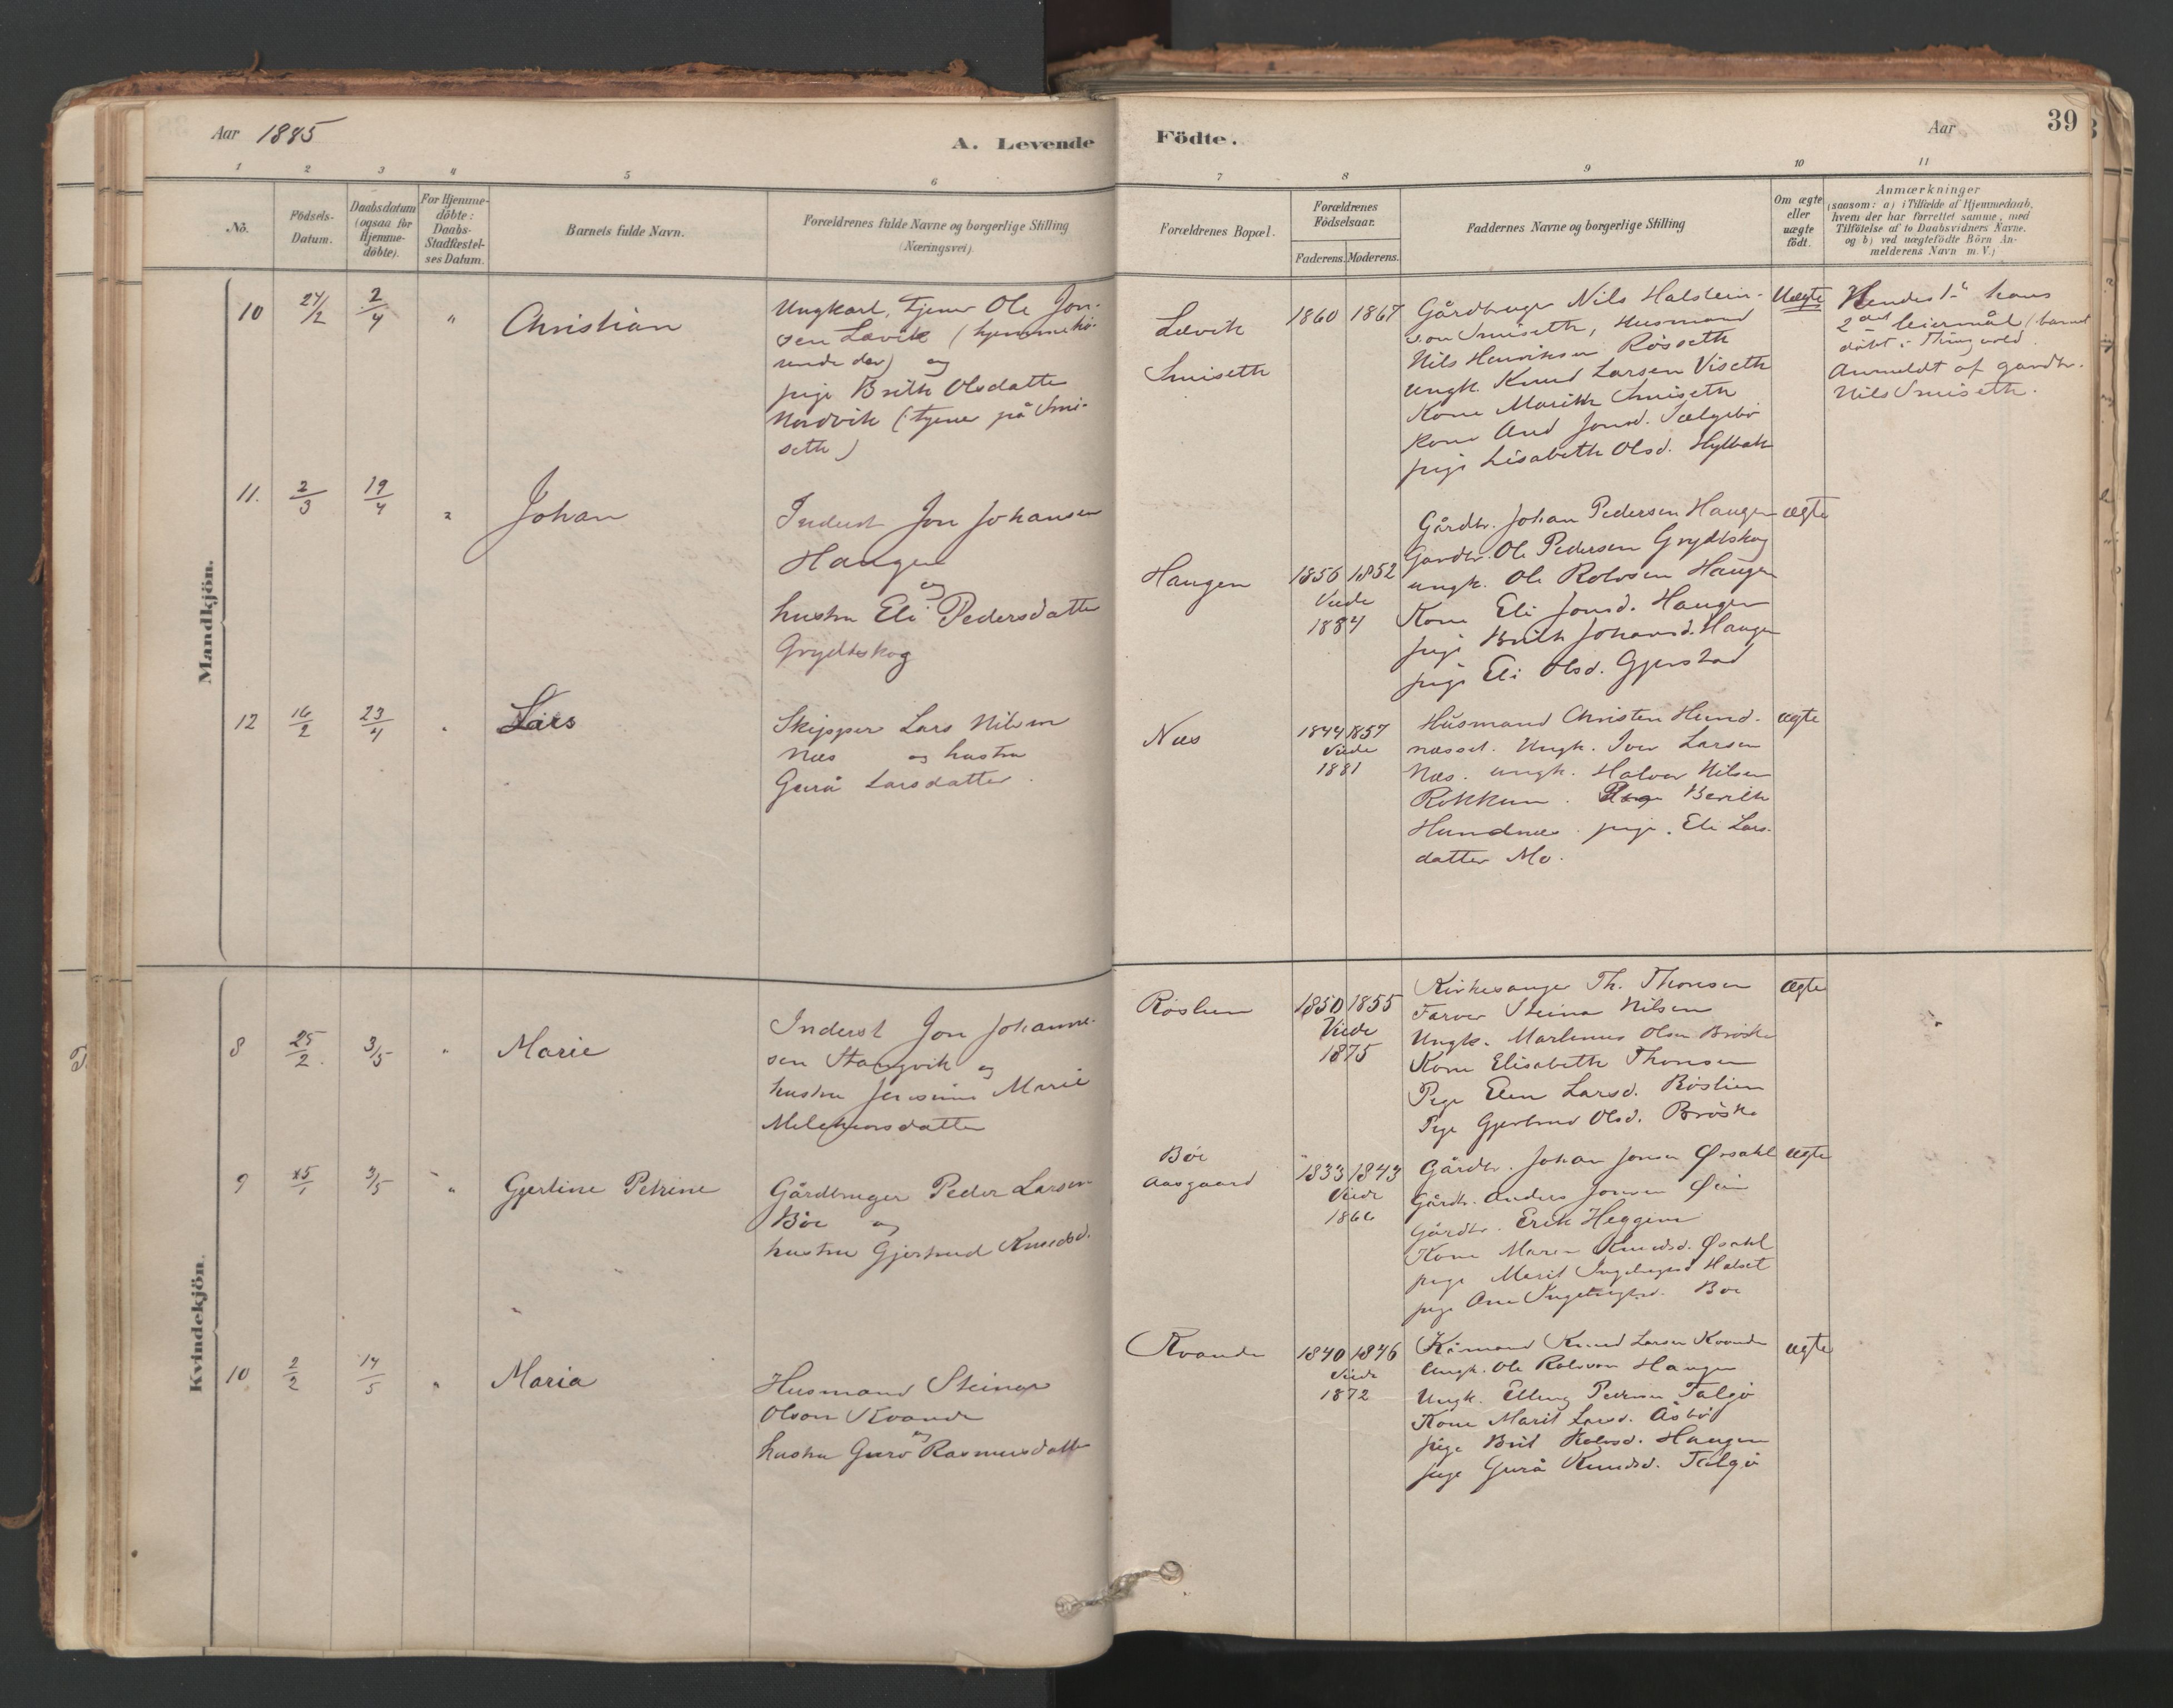 Aar 1885
A. Levende Födte.
Aar
39
1 2 3 4 5 6 7 8 9 10 11
No.
Födsels-
Datum.
Daabsdatum
(ogsaa for
Hjemme-
döbte).
For Hjemme-
döbte:
Daabs-
Stadfæstel-
ses Datum.
Barnets fulde Navn.
Forældrenes fulde Navne og borgerlige Stilling
(Næringsvei).
Forældrenes Bopæl.
Forældrenes
Födselsaar.
Faderens. Moderens.
Faddernes Navne og borgerlige Stilling
Om ægte
eller
uægte
födt.
Anmærkninger
(saasom: a) i Tilfælde af Hjemmedaab,
hvem der har forrettet samme, med
Tilföielse af to Daabsvidners Navne.
og b) ved uægtefödte Börn An-
melderens Navn m. V.)
Mandkjön.
10
24/2
2/4
"
Christian
Ungkarl, tjener Ole Jon-
sen Lævik (hjemmehö-
rende der) og
pige Brith Olsdatter
Nordvik (tjener på Smi-
seth)
Lævik
Smiseth
1860 1867
Gårdbruger Nils Halstein-
son Smiseth, Husmand
Nils Henriksen Rösseth
Ungk. Knud Larsen Viseth
Kone Marith Smiseth
Kone And Jonsd. Sælgebö
pige Lisabeth Olsd. Hylbak
Uægte
Hendes 1ste hans
2det leiermål (barnet
döbt i Thingvold
Anmeldt af gardbr.
Nils Smiseth.
11.
2/3
19/4
"
Johan
Inderst Jon Johansen
Haugen
og
hustru Eli Pedersdatter
Grydtskog
Haugen
1856 1852
Viede
1884
Gårdbr. Johan Pedersen Haugen
Gardbr. Ole Pedersen Grydtskog
ungk. Ole Rolvsen Haugen
Kone Eli Jonsd. Haugen
pige Brith Johansd. Haugen
pige Eli Olsd. Gjerstad
ægte
12
16/2
23/4
"
Lars
Skipper Lars Nilsen
Næs og hustru
Gurå Larsdatter.
Næs
1844 1857
Viede
1881
Husmand Christen Hund-
næsset. Ungk. Iver Larsen
Næs. ungk. Halvor Nilsen
Rokkum. Pige Berith
Hundnæs. pige. Eli Lars-
datter Mo.
ægte
Kvindekjön.
8
25/2
3/5
"
Marie
Inderst Jon Johanne-
sen Stangvik og
hustru Marie
Melchiorsdatter
Röslien
1850 1855
Viede
1875
Kirkesanger Th. Thonsen
Farver Steinar Nilsen
Ungk. Marthinus Olsen Bröske
Kone Elisabeth Thonsen
Pige Elen Larsd. Röslien
Pige Gjertrud Olsd. Bröske
Ægte
9
25/1
3/5
"
Gjertine Petrine
Gårdbruger Peder Larsen
Böe og
hustru Gjertrud Knudsd.
Böe
Aasgaard
1833 1843
Viede
1866
Gårdbr. Johan Jonsen Øxahl
Gårdb. Anders Jonsen Øien
Gårdbr. Erik Heggem
Kone Maren Knudsd. Øxahl
pige Marit Ingebrigtsd Halset
pige Ane Ingebrigtsd. Böe
ægte
10
2/2
14/5
"
Maria
Husmand Steinar
Olson Kvande
og
hustru Guro Rasmusdatter
Kvande
1840 1846
Viede
1872
Kårmand Knud Larsen Kvande
Ungk. Ole Rolvson Haugen
Ungk. Elling Pedersen Talgö
Kone Marit Larsd. Åsböl
pige Brit Rolvsd. Haugen
pige Gurå Knudsd. Talgö
ægte